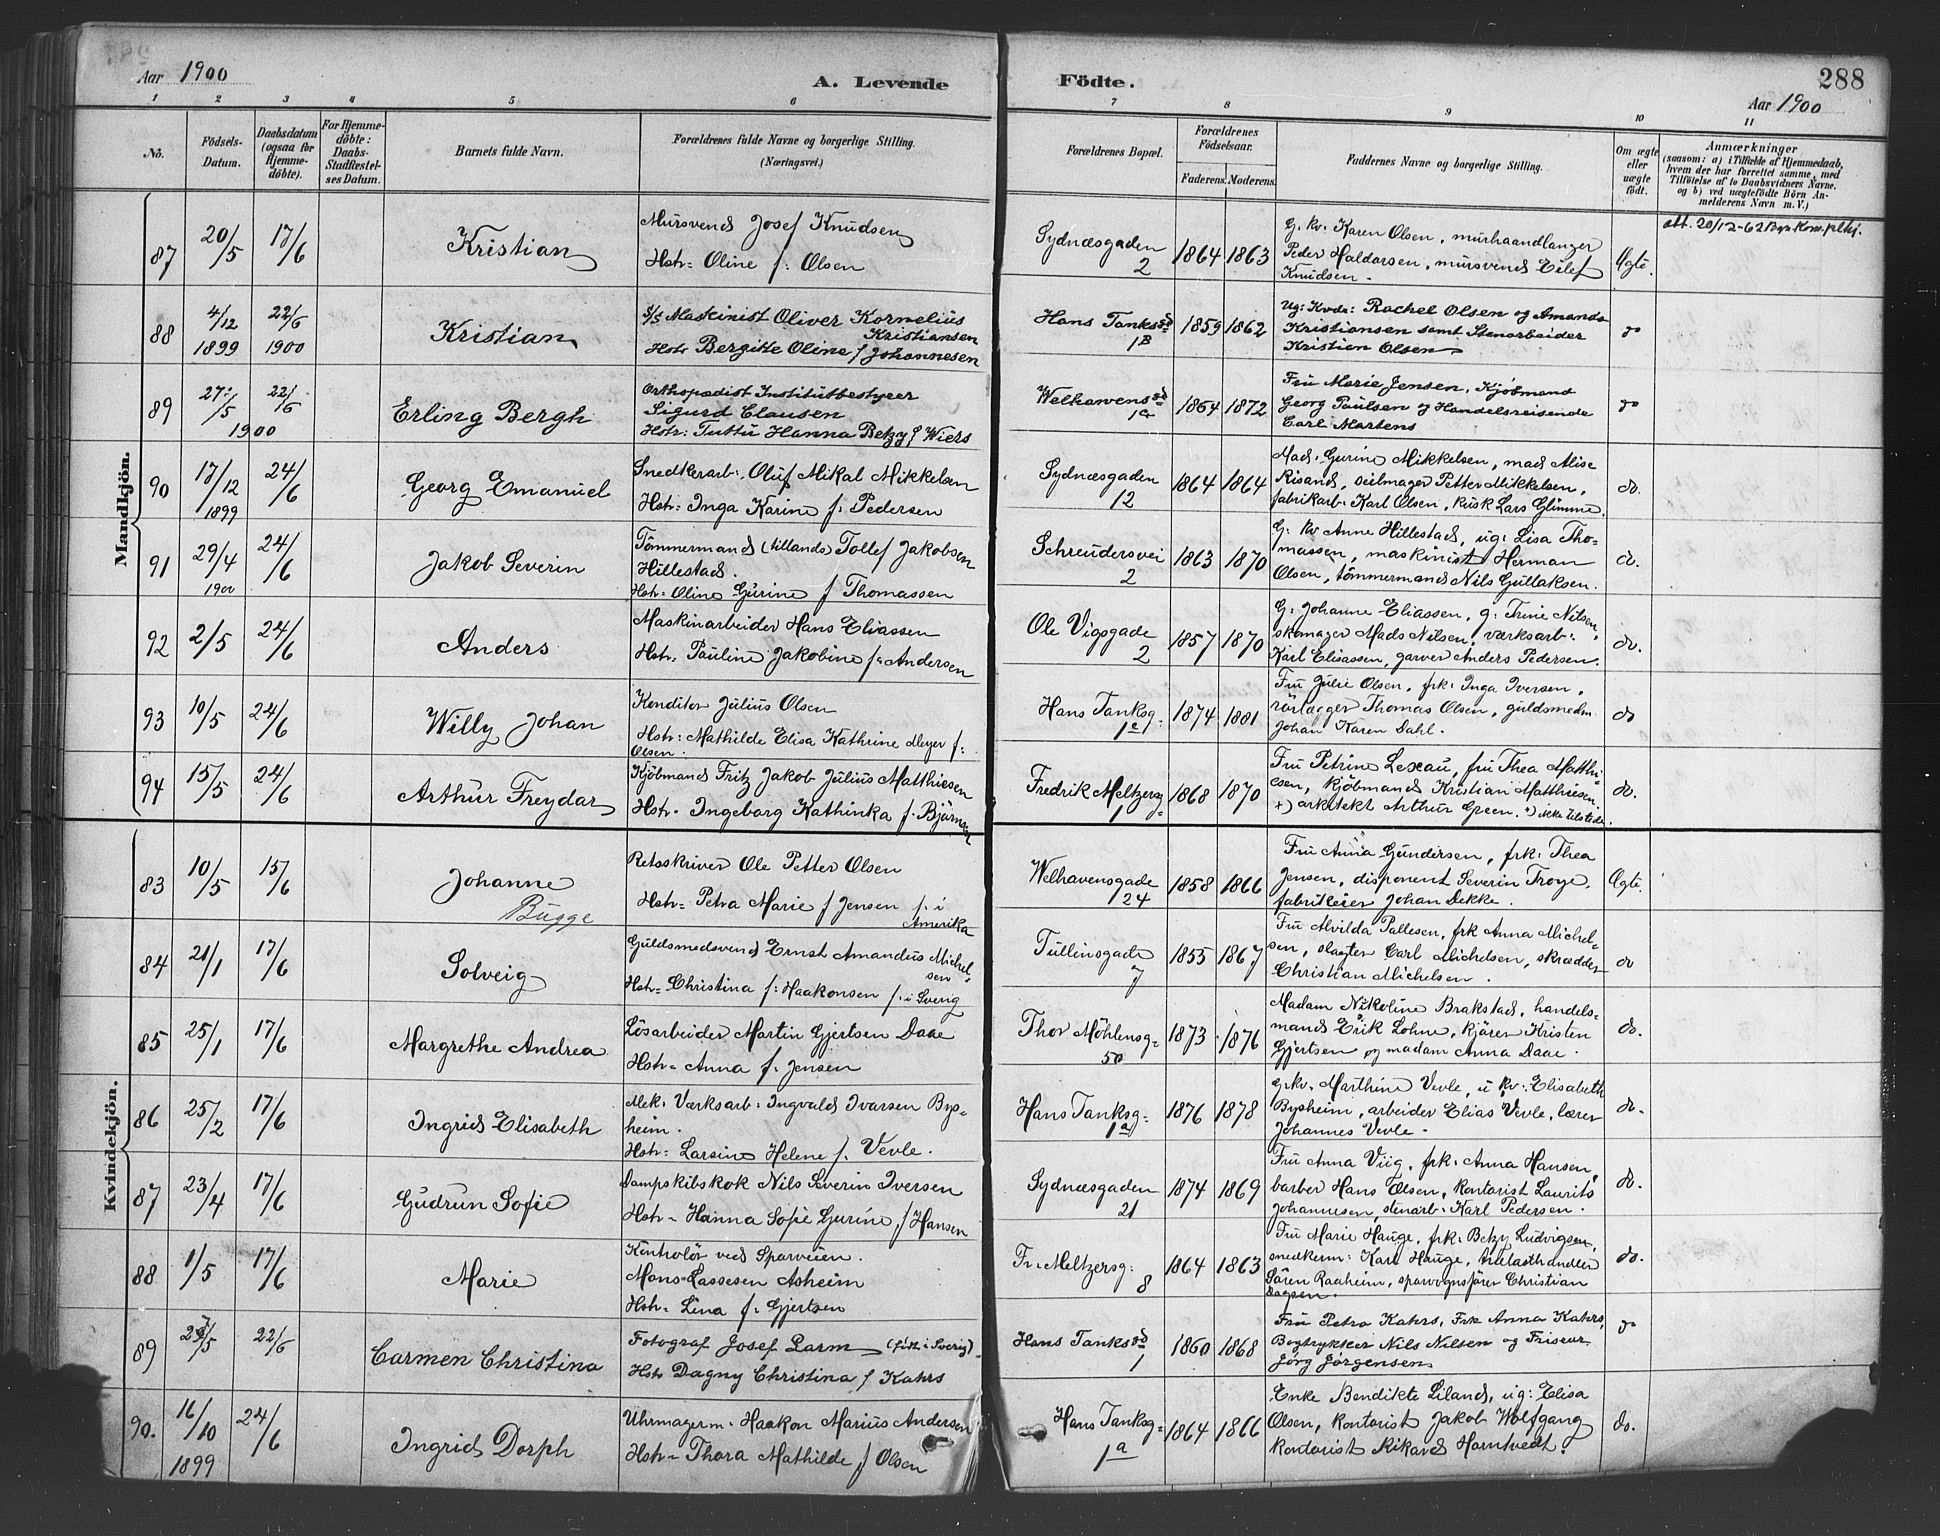 Aar 1900
A. Levende Födte.
288
Aar 1900
1 2 3 4 5 6 7 8 9 10 11
No.
Födsels-
Datum.
Daabsdatum
(ogsaa for
Hjemme-
döbte).
For Hjemme-
döbte:
Daabs-
Stadfæstel-
ses Datum.
Barnets fulde Navn.
Forældrenes fulde Navne og borgerlige Stilling.
(Næringsvei.)
Forældrenes Bopæl.
Forældrenes
Födselsaar.
Faderens. Moderens.
Faddernes Navne og borgerlige Stilling.
Om ægte
eller
uægte
födt.
Anmærkninger
(saasom: a) i Tilfælde af Hjemmedaab,
hvem der har forrettet samme, med
Tilföielse af to Daabsvidners Navne,
og b) ved uægtefödte Börn An-
melderens Navn m. V.)
Mandkjön.
87 20/5 17/6 Kristian
Mursvend Josef Knudsen
Hstr: Oline f: Olsen
Sydnæsgaden
2
1864 1863
G. kv: Karen Olsen, murhaandlanger
Peder Haldorsen, mursvend Eilef
Knudsen.
Ægte.
att. 20/12-62
88 4/12 1899 22/6 1900 Kristian
S/S Maskinist Oliver Kornelius
Kristiansen
Hstr Bergitte Oline f Johannesen
Hans Tanksgd
1B
1859 1862
Ug: Kvde: Rachel Olsen og Amanda
Kristiansen samt Stenarbeider
Kristian Olsen
do
89 27/5 1900 22/6 Erling Bergh
Orthopædist Institutbestyrer
Sigurd Clausen
Hstr: Tuttu Hanna Betzy f Wiers
Welhavensgd
1a
1864 1872
Fru Marie Jensen, Kjöbmand
Georg Paulsen og Handelsreisende
Carl Martens
do
90 17/12 1899 24/6 Georg Emanuel
Snedkerarb: Oluf Mikal Mikkelsen
Hstr: Inga Karine f: Pedersen
Sydnæsgaden
12
1864 1864
Mad: Gurine Mikkelsen, mad Alise
Risand, seilmager Petter Mikkelsen,
fabrikarb: Karl Olsen, kusk Lars Glimme.
do.
91 29/4 1900 24/6 Jakob Severin
Tömmermand (tillands) Tollef Jakobsen
Hillestad.
Hstr: Oline Gurine f Thomassen
Schreudersvei
2
1863 1870
G: kv Anne Hillestad, ug: Lisa Tho-
massen, maskinist Herman
Olsen, tömmermand Nils Gullaksen.
do.
92 2/5 24/6 Anders
Maskinarbeider Hans Eliassen
Hstr: Pauline Jakobine f: Andersen
Ole Vigsgade
2
1857 1870
G: Johanne Eliassen, g: Trine Nilsen,
skomager Mads Nilsen, værksarb:
Karl Elisassen, garver Anders Pedersen.
do.
93 10/5 24/6 Willy Johan
Konditor Julius Olsen
Hstr: Mathilde Elisa Kathrine Meyer f:
Olsen.
Hans Tanksg:
1a
1874 1881
Fru Julie Olsen, frk: Inga Iversen,
rörlægger Thomas Olsen, guldsmedm
Johan Karen Dahl.
do
94 15/5 24/6 Arthur Freydar
Kjöbmand Fritz Jakob Julius Matthiesen
Hstr: Ingeborg Kathinka f. Björnsen
Fredrik Meltzersg:
1
1868 1870
Fru Petrine Lexau, fru Thea Matthi-
esen, kjöbmand Kristian Matthiesen.
+) arkitekt Arthur Green. +) ikke tilstede.
do.
Kvindekjön.
83 10/5 15/6 Johanne
Bugge
Retsskriver Ole Petter Olsen
Hstr: Petra Marie f Jensen f: i
Amerika
Welhavensgade
24
1858 1866
Fru Anna Gundersen, frk: Thea
Jensen, disponent Severin Troye,
fabrikeier Johan Dekke.
Ægte.
84 21/1 17/6 Solveig
Guldsmedsvend Ernst Amandus Michel-
sen
Hstr: Christina f: Haakonsen f: i Sverig
Tullinsgade
7
1855 1867
Fru Alvilda Pallesen, frk Anna Michel-
sen, slagter Carl Michelsen, skrædder
Christian Michelsen.
do
85 25/1 17/6 Margrethe Andrea
Lösarbeider Martin Gjertsen Daae
Hstr: Anna f. Jensen
Thor Möhlensg:
50
1873 1876
Madam Nikoline Brakstad, handels-
mand Erik Lohne, kjörer Kristen
Gjertsen og madam Anna Daae.
do.
86 25/2 17/6 Ingrid Elisabeth
Mek: Værksarb: Ingvald Ivarsen Bys-
heim.
Hstr: Larsine Helene f. Vevle.
Hans Tanksg:
1a
1876 1878
g.kv. Marthine Vevle, u kv: Elisabeth
Bysheim, arbeider Elias Vevle, lærer
Johannes Vevle.
do.
87 23/4 17/6 Gudrun Sofie
Dampskibskok Nils Severin Iversen
Hstr: Hanna Sofie Gurine f Hansen
Sydnæsgaden
21
1874 1869
Fru Anna Viig, frk: Anna Hansen,
barber Hans Olsen, kontorist Laurits
Johannesen, stenarb: Karl Pedersen.
do.
88 1/5 17/6 Marie
Kontrolör ved Sporveien.
Mons Lassesen Asheim
Hstr: Lina f: Gjertsen
Fr: Meltzersg:
8
1864 1863
Fru Marie Hauge, frk: Betzy Ludvigsen,
snedkerm: Karl Hauge, trælasthandler
Sören Raaheim, sporvognsförer Christian
Dagsen.
do.
89 27/5 22/6 Carmen Christina
Fotograf Josef Larm (födt i Sverig)
Hstr Dagny Christina f Kahrs
Hans Tanksgd
1
1860 1868
Fru Petra Kahrs, Frk Anna Kahrs,
Bogtrykker Nils Nilsen og Friseur
Jörg Jörgensen
do
90. 16/10 1899 24/6 Ingrid Dorph
Uhrmagerm: Haakon Marius Andersen
Hstr: Thora Mathilde f Olsen
Hans Tanksg:
1a
1864 1866
Enke Bendikte Liland, ug: Elisa
Olsen, kontorist Jakob Wolfgang
kontorist Rikard Horntvedt.
do.